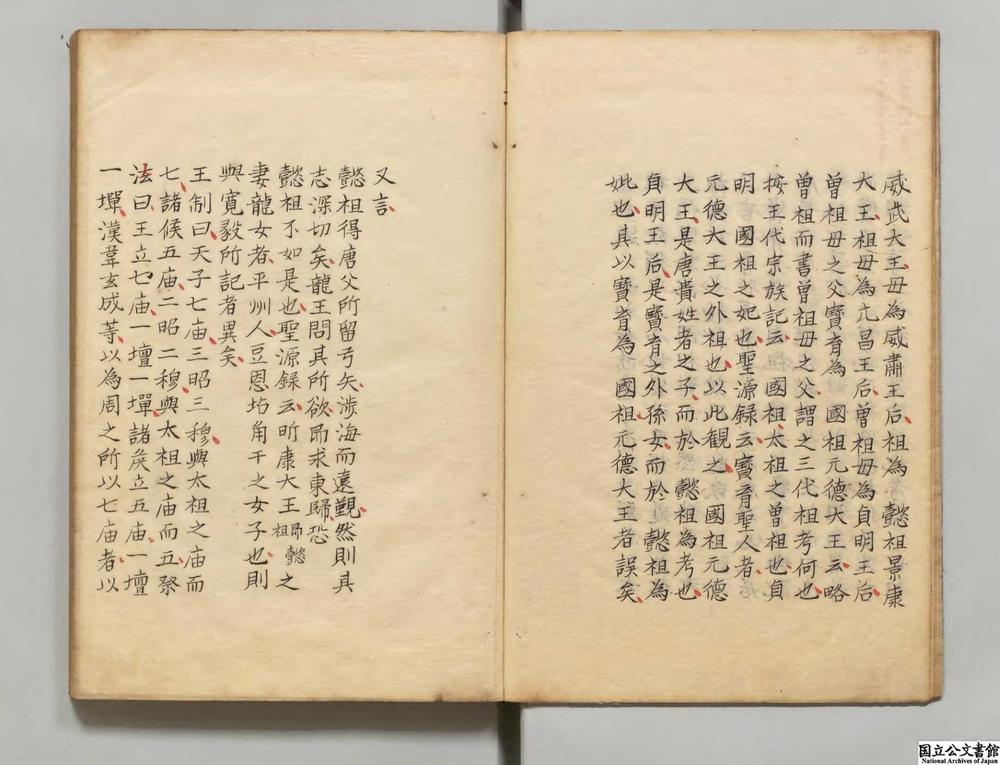 威武大王母爲威肅王后祖爲 懿祖景康
大王祖母爲元昌王后曾祖母爲貞明王后
曾祖母之父寶育爲 國祖元德大王云略
曾祖而書曾祖母之父謂之三代祖考何也
按王代宗族記云 國祖太祖之曾祖也貞
明 國祖之妃也聖源録云寶育聖人者
元德大王之外祖也以此観之 國祖元德
大王是唐貴姓者之子而於 懿祖爲考也
貞明王后是寶育之外孫女而於 懿祖爲
妣也其以寶育爲 國祖元德大王者誤矣
又言
懿祖得唐父所留弓矢涉海而遠覲然則其
志深切矣龍王問其所欲即求東歸恐
懿祖不如是也聖源録云昕康大王即懿祖之
妻龍女者平州人豆恩坫角干之女子也則
與寛毅所記者異矣
王制曰天子七庙三昭三穆與太祖之庙而
七諸侯五庙二昭二穆與太祖之庙而五祭
法曰王立七庙一壇一墠諸矦立五庙一壇
一墠漢韋玄成等以為周之所以七庙者以
国立公文書館
National Archives of Japan